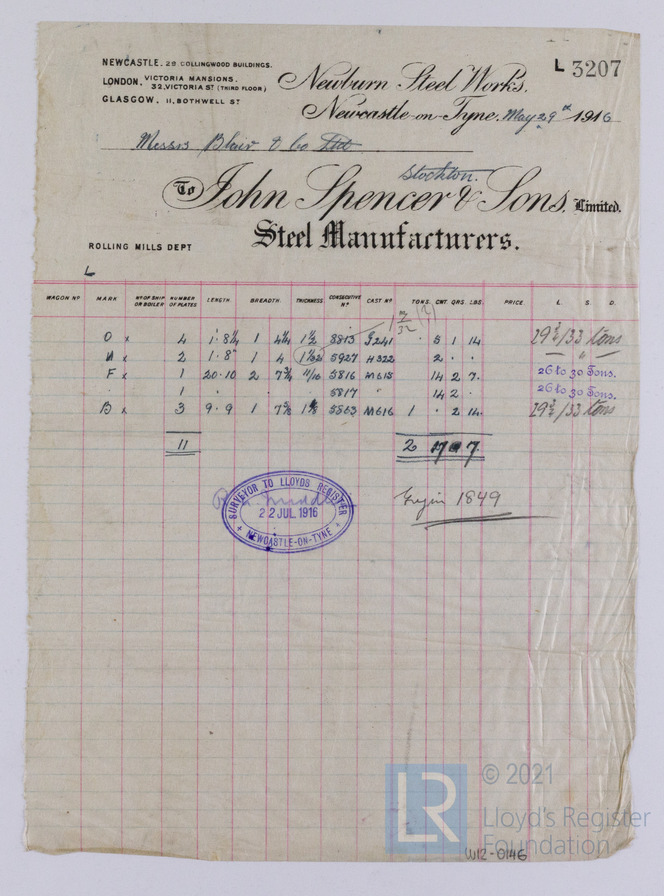 NEWCASTLE. 29 COLLINGWOOD BUILDINGS.
LONDON. VICTORIA MANSIONS. 32, VICTORIA ST (THIRD FLOOR)
GLASGOW. 11, BOTHWELL ST
L 3207
Newburn Steel Works.
Newcastle-on-Tyne. May 29th 1916
Messrs Blair & Co Ltd
Stockton.
To John Spencer & Sons. Limited.
Steel Manufacturers.
ROLLING MILLS DEPT
L
WAGON NO MARK NO OF SHIP OR BOILER NUMBER OF PLATES LENGTH. BREADTH. THICKNESS CONSECUTIVE NO CAST NO TONS. CWT. QRS. LBS. PRICE. L. S. D.
O x 4 1·8¼ 1 4¼ 1½ 5813 5 1 14 29½/33 tons
N x 2 1·8" 1 4 5927 H322 2 . .
F x 1 20·10 2 7¾ 11/16 5816 M615 14 2 7. 26 to 30 Tons.
1 5817 14 2 . 26 to 30 Tons.
B x 3 9·9 1 M616 1 . 2 14. 29½/33 tons
11 2 17 7.
SURVEYOR TO LLOYDS REGISTER
22 JUL 1916
NEWCASTLE-ON-TYNE
1849
LR © 2021
Lloyd's Register
Foundation
W12-0146